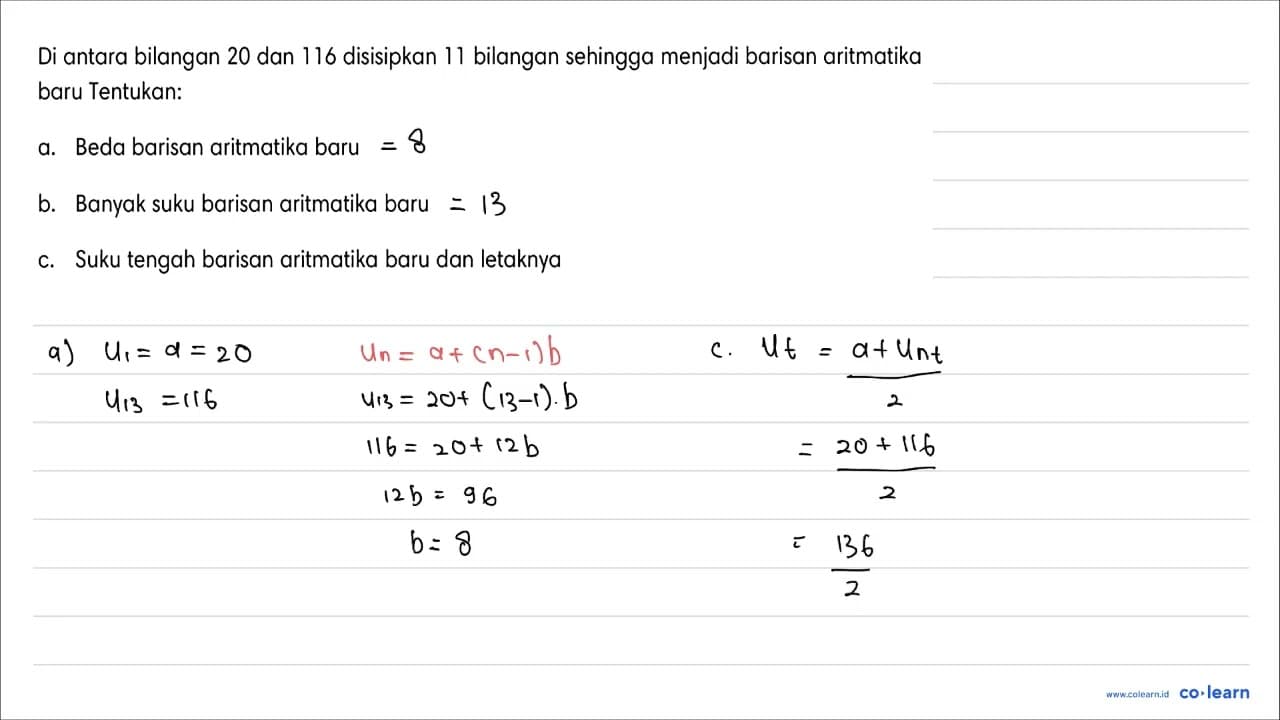 Di antara bilangan 20 dan 116 disisipkan 11 bilangan sehingga menjadi barisan aritmatika
baru Tentukan:
a. Beda barisan aritmatika baru = 8
b. Banyak suku barisan aritmatika baru = 13
c. Suku tengah barisan aritmatika baru dan letaknya
a) U1 = a = 20
U13 = 116
Un = a + (n-1)b
U13 = 20 + (13-1).b
116 = 20 + 12b
12b = 96
b = 8
c. Ut = a + Unt
2
= 20 + 116
2
= 136
2
www.colearn.id co·learn